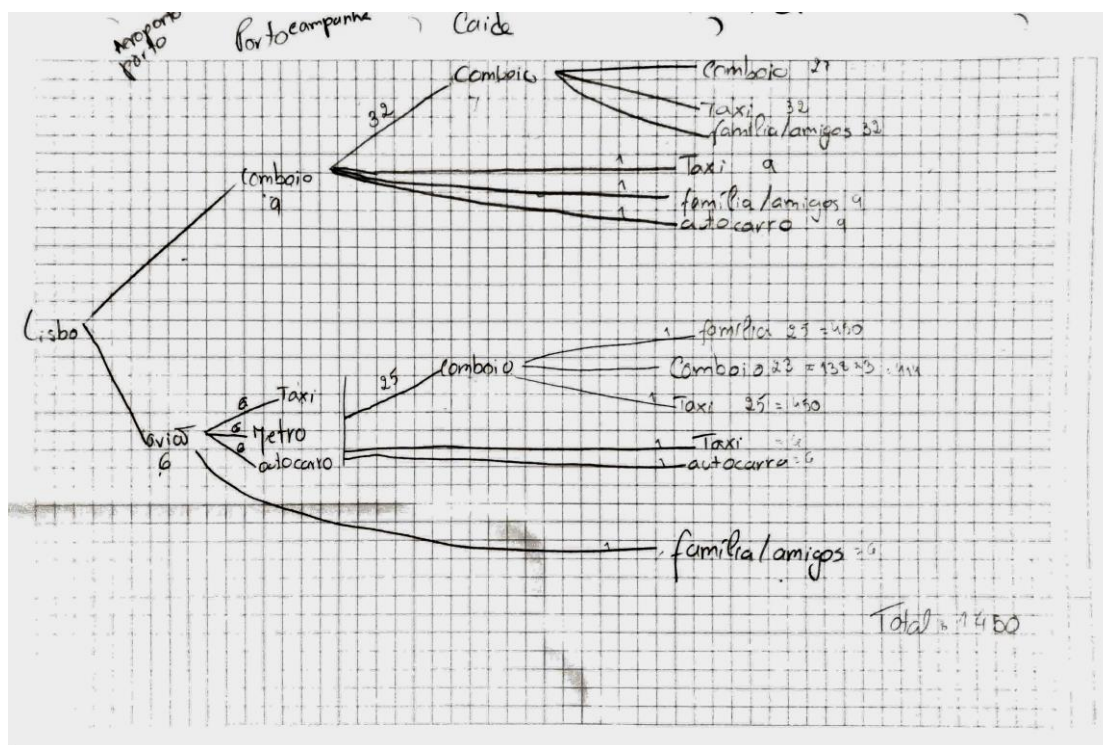 Aeroporto porto
Porto campanha
Caide
Comboio
Comboio 27
Taxi 32
família/amigos 32
32
Comboio
9
1 Taxi 9
1 família/amigos 9
1 autocarro 9
Lisbo
avião
6
6 Taxi
6 Metro
6 autocarro
25 Comboio
1 família 25 = 450
Comboio 23 = 138 × 3 = 414
1 Taxi 25 = 450
1 Taxi
1 autocarra = 6
1 família/amigos = 6
Total = 1450